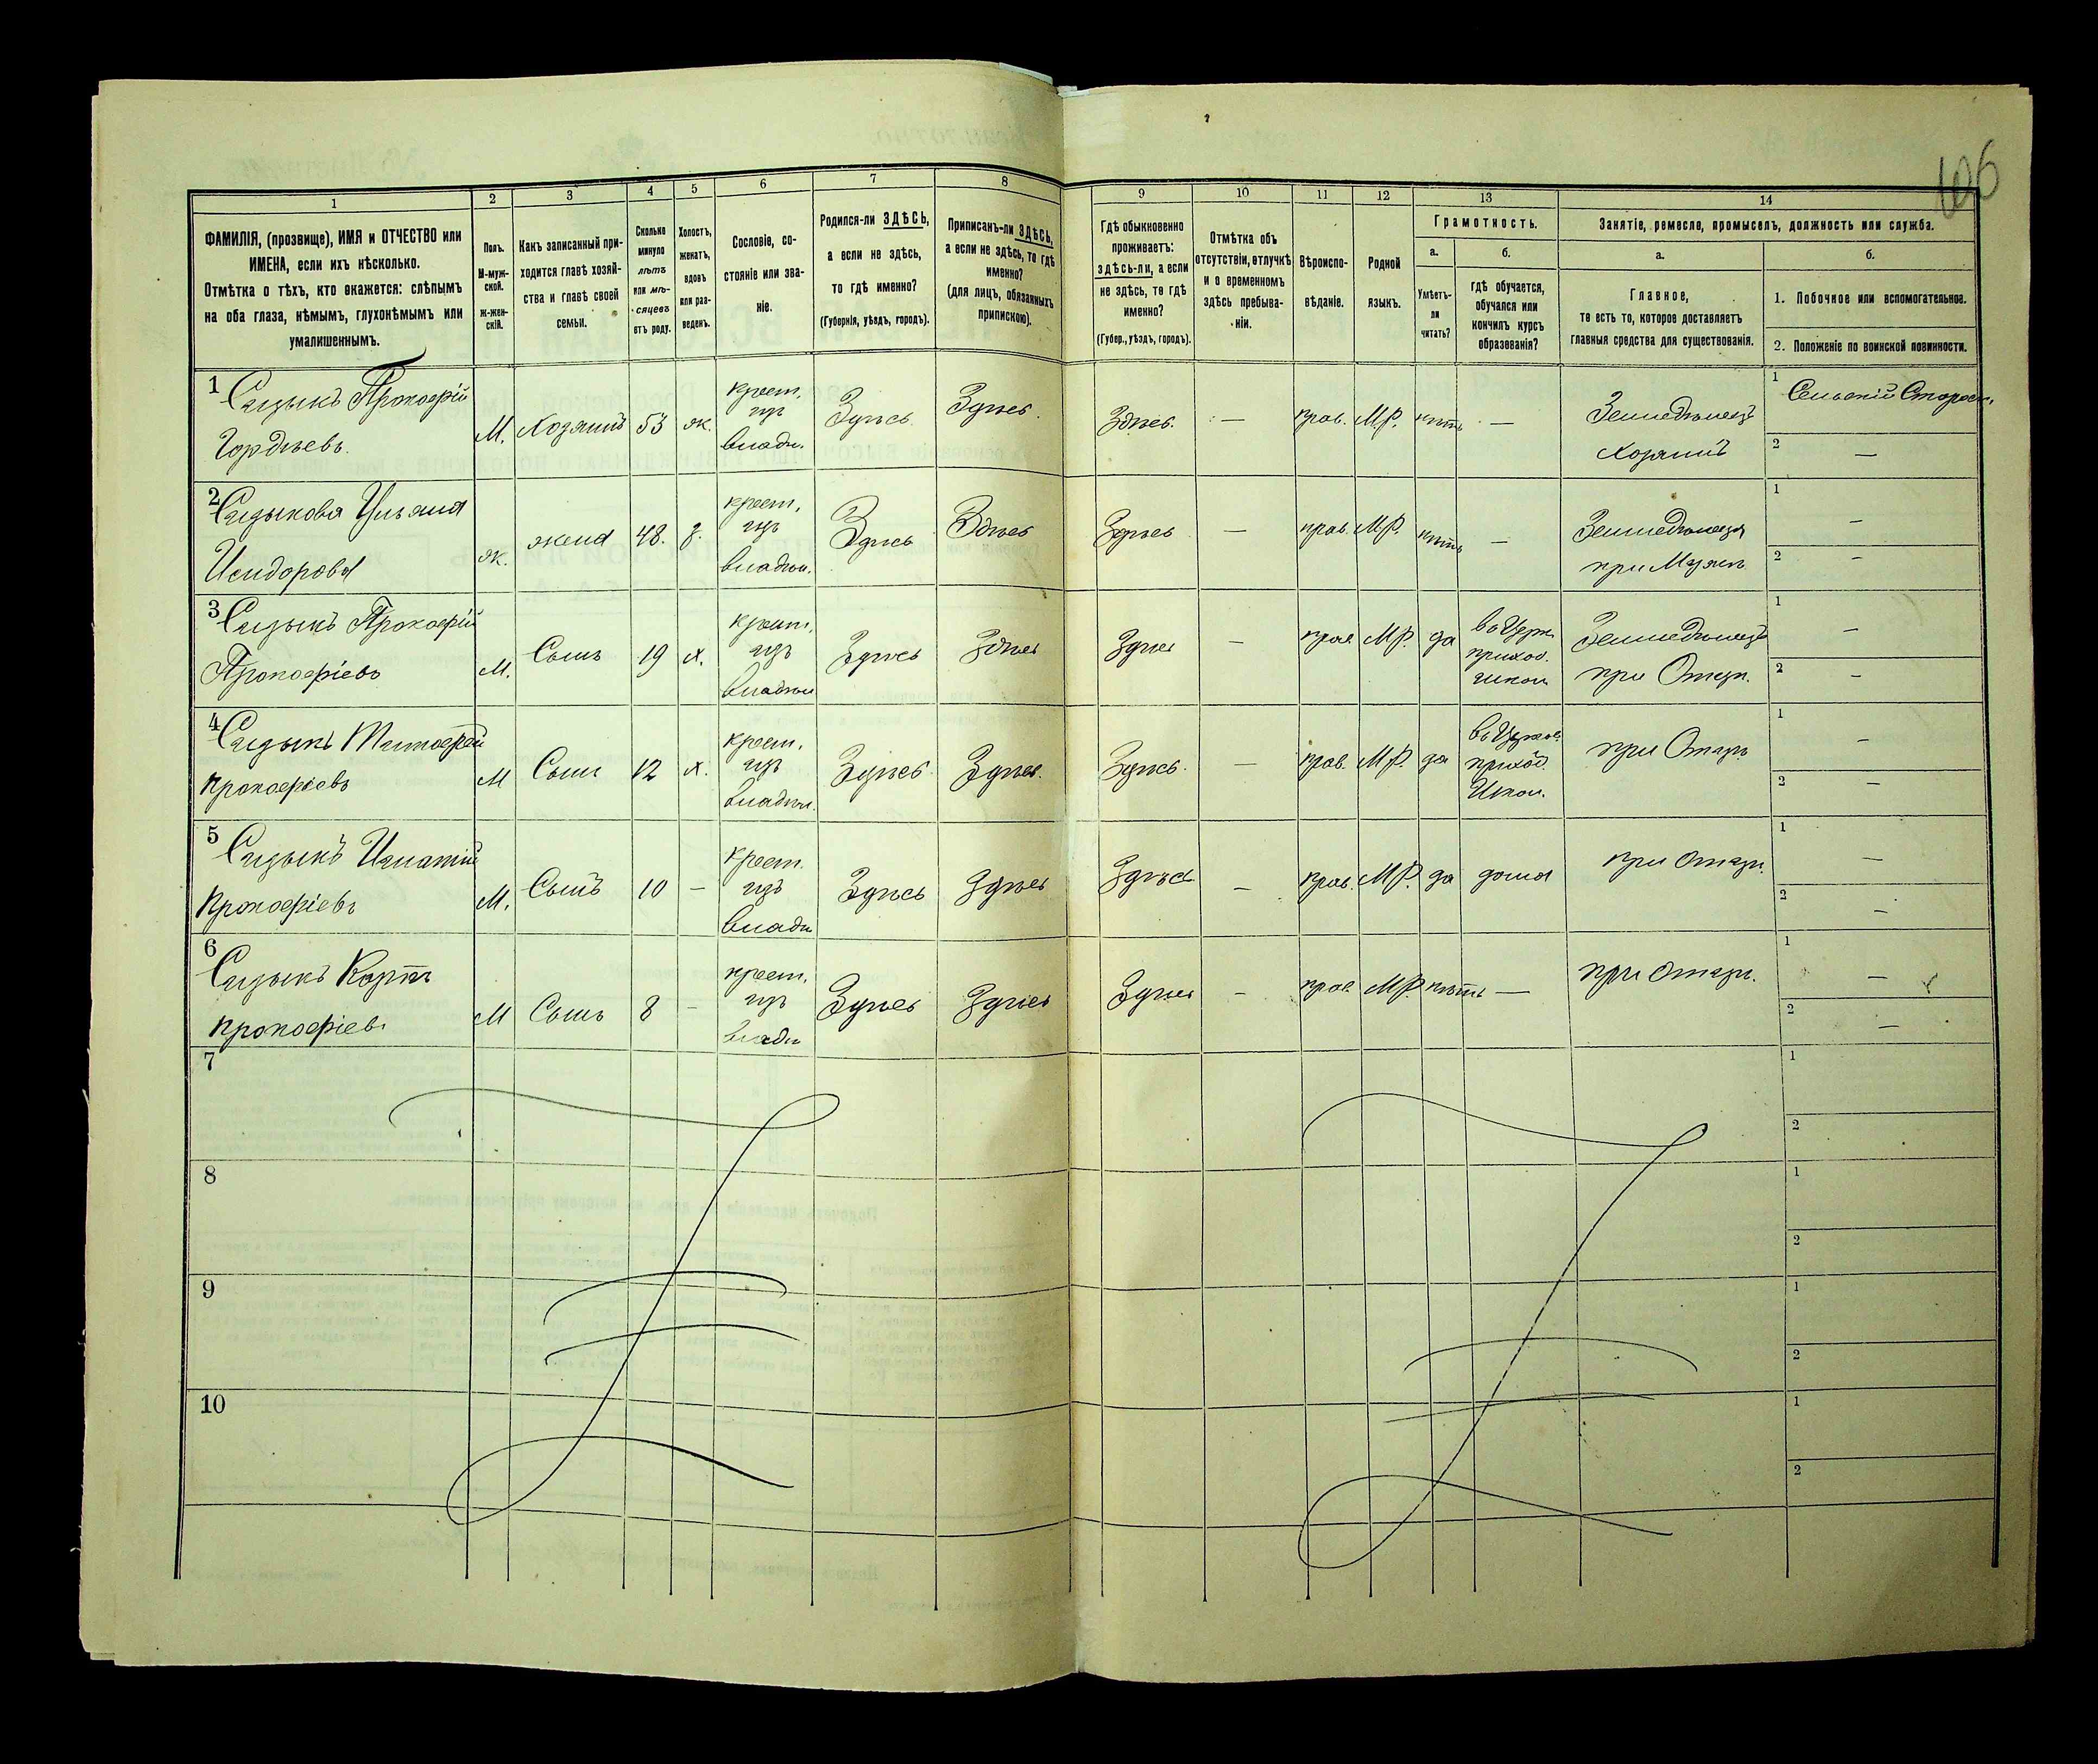 106
1 2 3 4 5 6 7 8 9 10 11 12 13 14
ФАМИЛІЯ, (прозвище), ИМЯ и ОТЧЕСТВО или
ИМЕНА, если ихъ нѣсколько.
Отмѣтка о тѣхъ, кто окажется: слѣпымъ
на оба глаза, нѣмымъ, глухонѣмымъ или
умалишеннымъ.
Полъ.
М-муж-
ской.
Ж-жен-
скій.
Какъ записанный при-
ходится главѣ хозяй-
ства и главѣ своей
семьи.
Сколько
минуло
лѣтъ
или мѣ-
сяцевъ
отъ роду.
Холостъ,
женатъ,
вдовъ
или раз-
веденъ.
Сословіе, со-
стояніе или зва-
ніе.
Родился-ли ЗДѢСЬ,
а если не здѣсь,
то гдѣ именно?
(Губернія, уѣздъ, городъ).
Приписанъ-ли ЗДѢСЬ,
а если не здѣсь, то гдѣ
именно?
(для лицъ, обязанныхъ
припискою).
Гдѣ обыкновенно
проживаетъ:
здѣсь-ли, а если
не здѣсь, то гдѣ
именно?
(Губер., уѣздъ, городъ).
Отмѣтка объ
отсутствіи, отлучкѣ
и о временномъ
здѣсь пребыва-
ніи.
Вѣроиспо-
вѣданіе.
Родной
языкъ.
Грамотность.
а.
Умѣетъ-
ли
читать?
б.
гдѣ обучается,
обучался или
кончилъ курсъ
образованія?
Занятіе, ремесло, промыселъ, должность или служба.
а.
Главное,
то есть то, которое доставляетъ
главныя средства для существованія.
б.
1. Побочное или вспомогательное.
2. Положеніе по воинской повинности.
1 Сизыкъ Прокофій
Гордѣевъ.
М. Хозяинъ 53 ж.
крест.
изъ
владѣл.
Здѣсь. Здѣсь. Здѣсь. — прав. М.Р. нѣтъ —
Земледѣлецъ
хозяинъ
1 Сельскій Старост.
2 —
2 Сизыкова Ульяна
Исидорова
ж. жена 48. з.
крест.
изъ
владѣл.
Здѣсь Здѣсь Здѣсь — прав. М.Р. нѣтъ —
Земледѣлецъ
при Мужѣ
1 —
2 —
3 Сизыкъ Прокофій
Прокофіевъ
М. Сынъ 19 х.
крест.
изъ
владѣл
Здѣсь Здѣсь Здѣсь — прав М.Р. да
въ Церк.
приход.
школ
Земледѣлецъ
при Отцѣ.
1 —
2 —
4 Сизыкъ Тимофей
Прокофіевъ
М Сынъ 12 х.
крест.
изъ
владѣл.
Здѣсь Здѣсь. Здѣсь. — прав. М.Р. да
въ Церков.
приход.
Школ.
при Отцѣ
1 —
2 —
5 Сизыкъ Игнатій
Прокофіевъ
М. Сынъ 10 —
крест.
изъ
владѣ
Здѣсь Здѣсь Здѣсь — прав. М.Р. да дома
при отцѣ.
1 —
2 —
6 Сизыкъ
Прокофіев.
М Сынъ 8 —
крест.
изъ
владѣ
Здѣсь Здѣсь Здѣсь — прав. М.Р. нѣтъ —
при отцѣ.
1 —
2 —
7
1
2
8
1
2
9
1
2
10
1
2